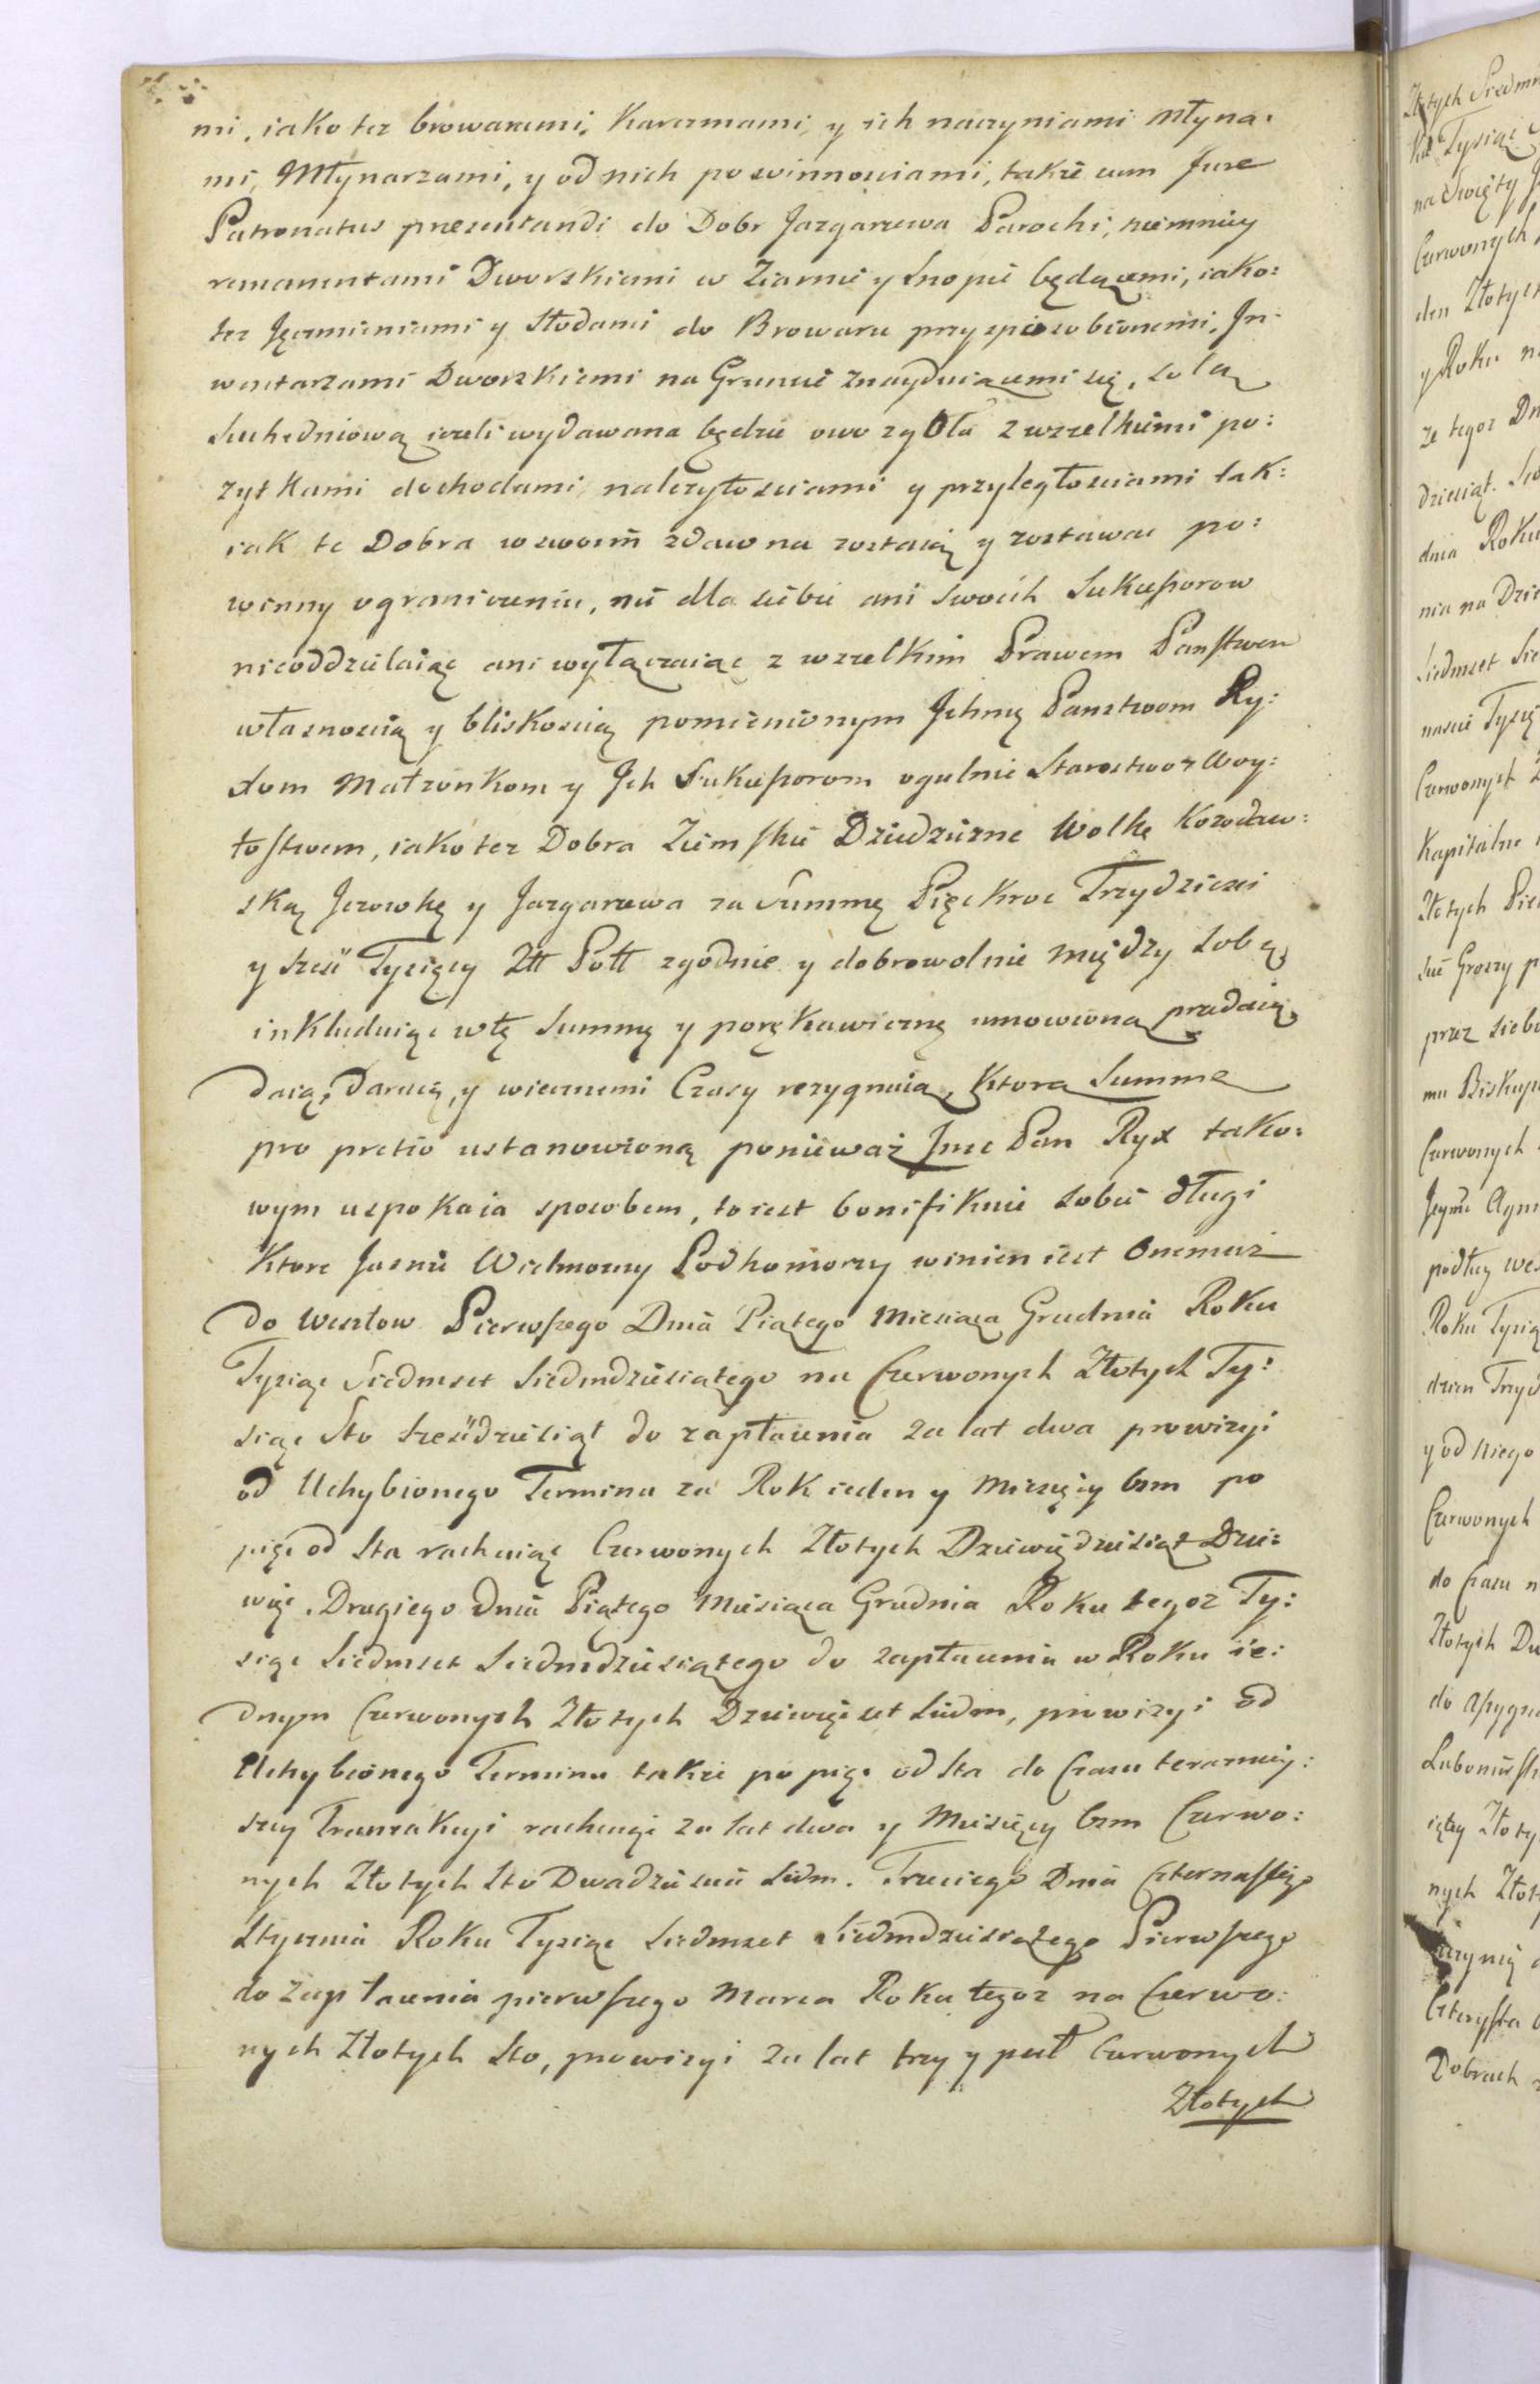 mi, iako tez browarami, Karczmami, y ich naczyniami Młyna:
mi, Młynarzami, y od nich powinnosciami, także cum Jure
Patronatus prezentandi do Dobr Jazgarzewa Parochi, niemniey
remanentami Dworskiemi w Ziarnie y Snopie będącemi, iako:
tez Jęczmieniami y Słodami do Browaru przysposobionemi, In:
wentarzami Dworskiemi na Gruncie znayduiącemi się, solą
Suchedniową ieżeli wydawana będzie owo zgOła z wszelkiemi po:
zytkami dochodami, należytosciami y przyległosciami tak:
iak te Dobra w swoim zdawna zostaią y zostawac po:
winny ograniczeniu, nic dla siebie ani swoich Sukcessorow
nieoddzielaiąc ani wyłączaiąc z wszelkim Prawem Panstwem
własnoscią y bliskoscią pomienionym Jchmę Panstwom Ry:
xom Małżonkom y Jch Sukcessorom ogulnie Starostwo z Woy:
tostwem, iako tez Dobra Ziemskie Dziedziczne Wolkę Kozodaw:
ską Jerowkę y Jazgarzewa za Summę Pięckroc Trzydziesci
y szesc Tysięcy Złł Poll zgodnie y dobrowolnie między sobą
inkluduiąc w tę Summę y porękawiczną umowioną przedaią,
Daią, Daruią, y wiecznemi Czasy rezygnuią, Ktorą Summę
pro pretio ustanowioną ponieważ Jmc Pan Ryx tako:
wym uspokaia sposobem, to iest bonifikuie sobie długi
Ktore Jasnie Wielmożny Podkomorzy winien iest Onemuż
do Wexlow Pierwszego Dnia Piątego Miesiąca Grudnia Roku
Tysiąc Siedmset Siedmdziesiątego na Czerwonych Złotych Ty:
siąc Sto szesćdziesiąt do zapłacenia za lat dwa prowizyi
od Uchybionego Terminu za Rok ieden y Miesięcy 8sm po
pięć od sta rachuiąc Czerwonych Złotych Dziewięcdziesiąt Dzie:
więc. Drugiego Dnia Piątego Miesiąca Grudnia Roku tegoz Ty:
siąc Siedmset Siedmdziesiątego do zapłacenia w Roku ie:
dnym Czerwonych Złotych Dziewięcset siedm, prowizyi od
Uchybionego Terminu także po pięc od sta do Czasu teraznieÿ:
szey Tranzakcyi rachuiąc za lat dwa y Miesięcy 8sm Czerwo:
nych Złotych Sto Dwadziescia siedm. Trzeciego Dnia Czternastego
Stycznia Roku Tysiąc Siedmset Siedmdziesiątego Pierwszego
do zapłacenia pierwszego Marca Roku tegoz na Czerwo:
nych Złotych Sto, prowizyi za lat trzy y puł Czerwonych
Złotych